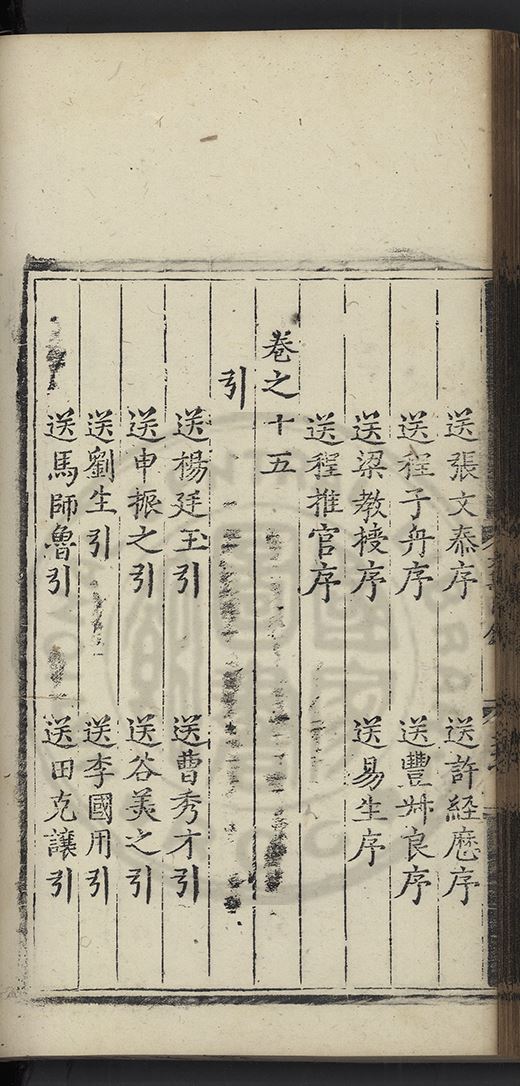 送張文泰序　送許経歷序
送程子舟序　送豐州良序
送梁教授序　送易生序
送程推官序
卷之十五
引
送楊廷玉引　送曹秀才引
送申振之引　送谷美之引
送劉生引　送李國用引
送馬師魯引　送田克讓引